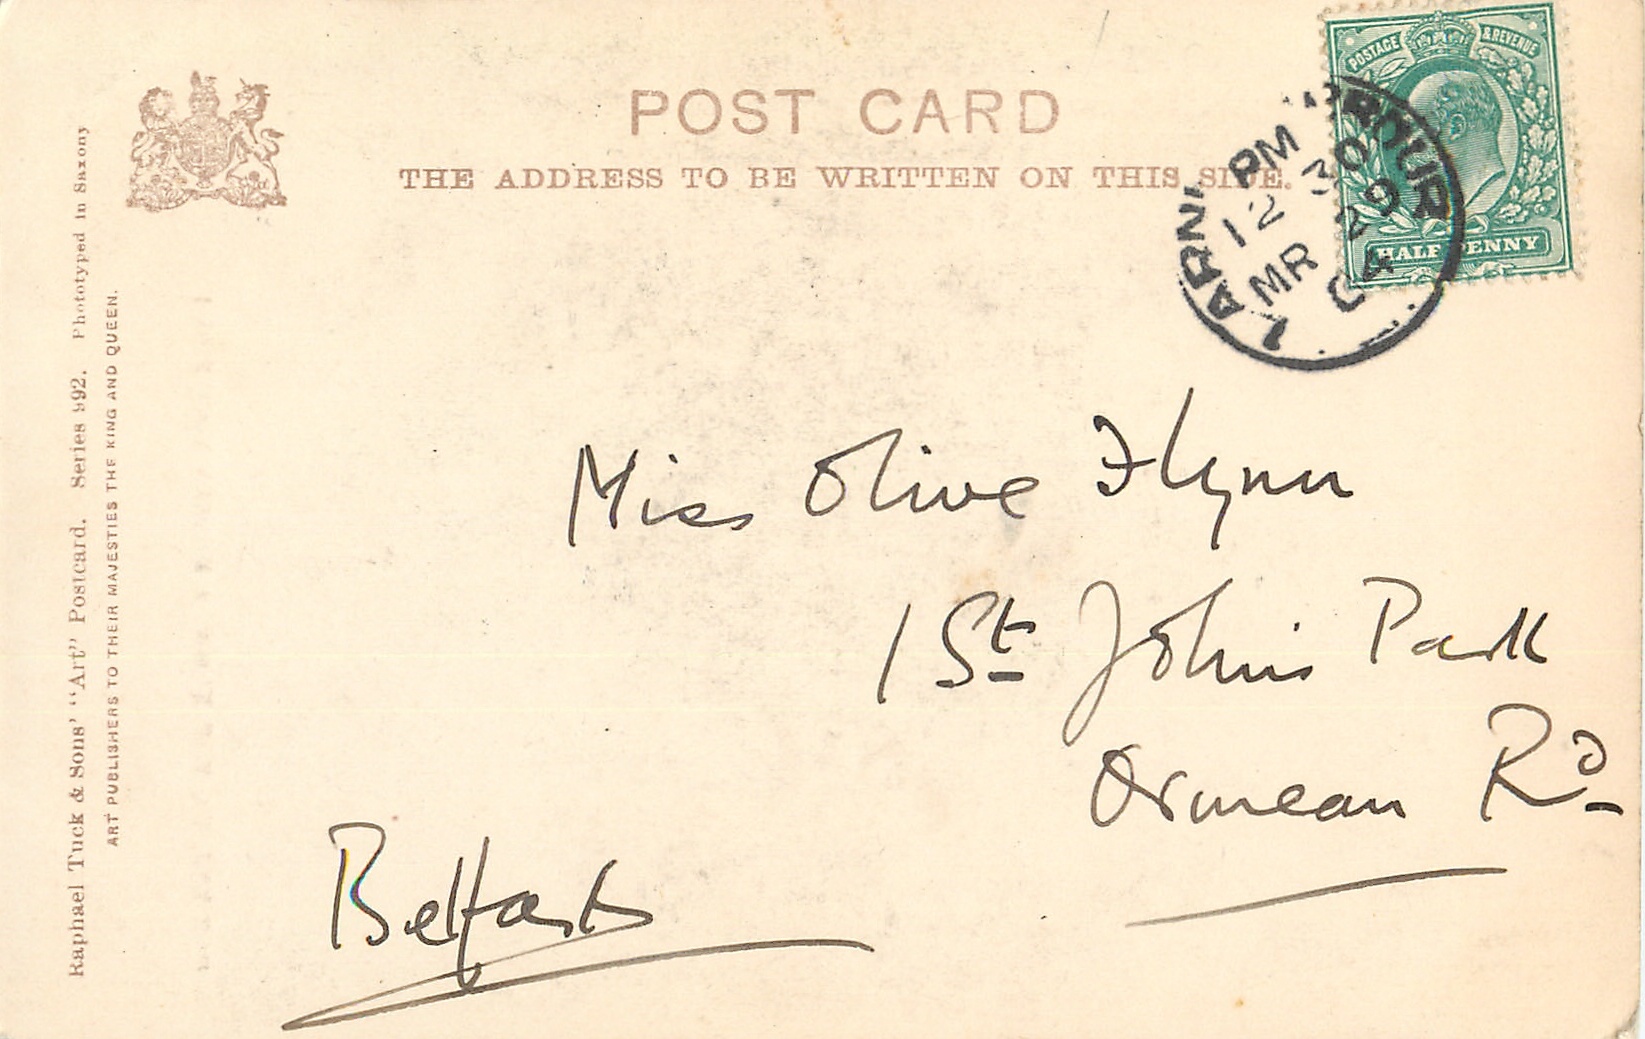 POST CARD
THE ADDRESS TO BE WRITTEN ON THIS SIDE.
POSTAGE & REVENUE
HALFPENNY
LARNE HARBOUR
PM
12 30
MR 29
04
Miss Olive Flynn
1 St Johns Park
Ormeau Rd
Belfast
Raphael Tuck & Sons' "Art" Postcard. Series 992. Phototyped in Saxony
ART PUBLISHERS TO THEIR MAJESTIES THE KING AND QUEEN.